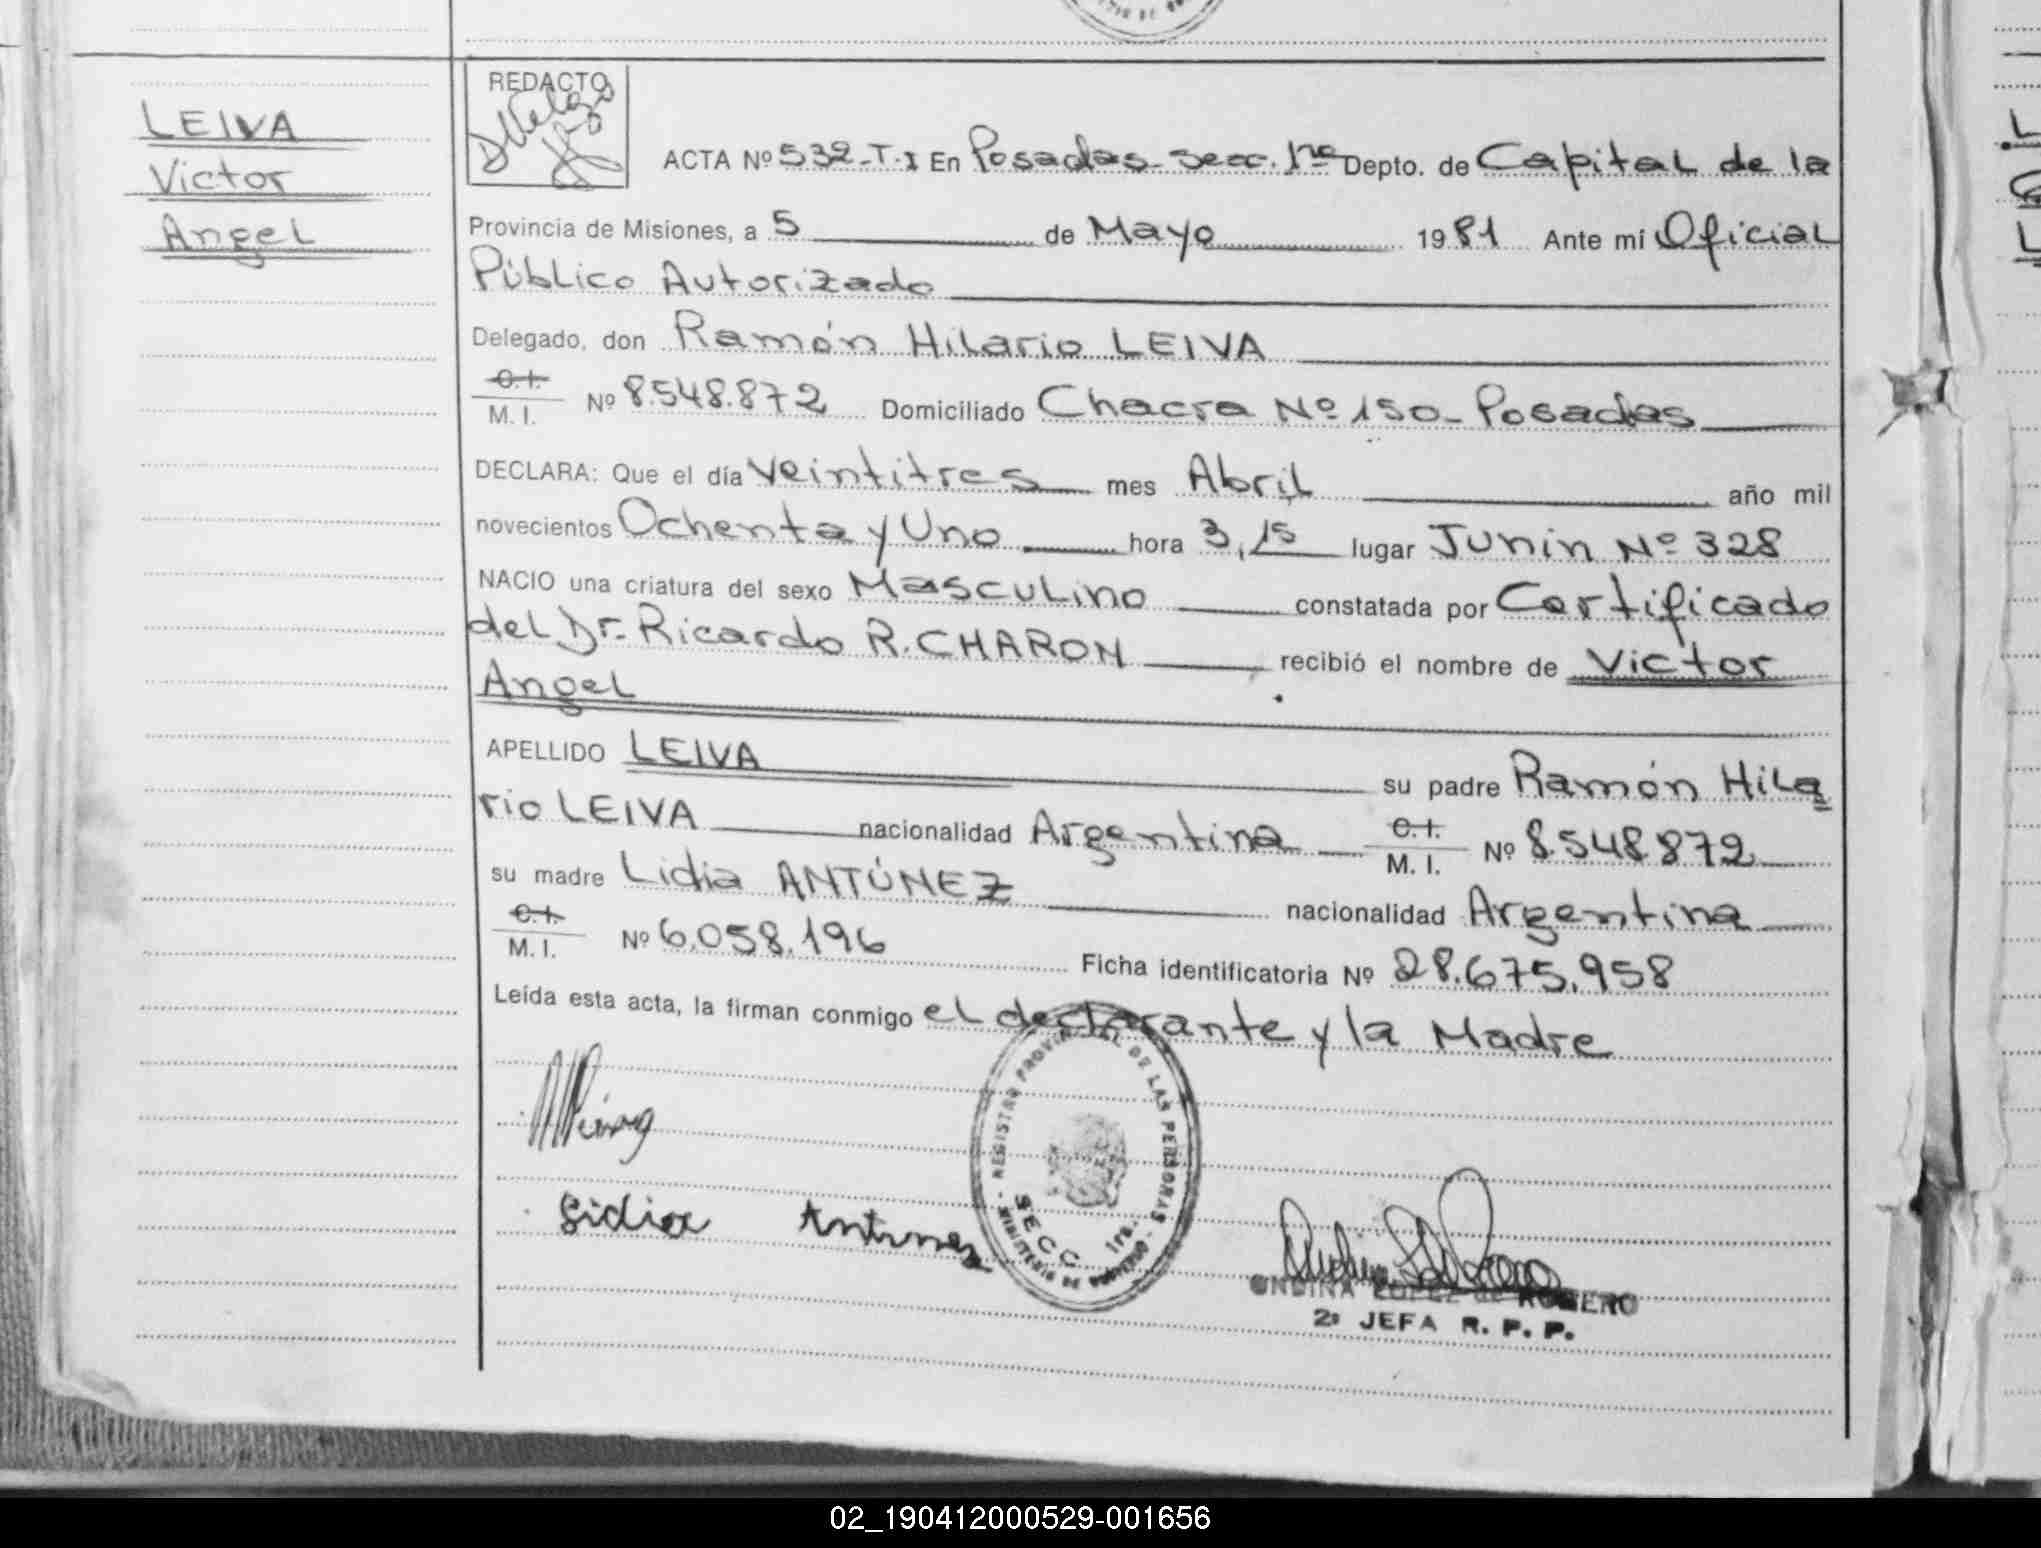 LEIVA
Victor
Angel
REDACTO
ACTA Nº 532-T.I En Posadas-Secc. 1ra Depto. de Capital de la
Provincia de Misiones, a 5 de Mayo 1981 Ante mi Oficial
Público Autorizado
Delegado, don Ramón Hilario LEIVA
C.I.
M. I. Nº 8.548.872 Domiciliado Chacra Nº 150-Posadas
DECLARA: Que el día Veintitres mes Abril año mil
novecientos Ochenta y Uno hora 3,15 lugar Junin Nº 328
NACIO una criatura del sexo Masculino constatada por Certificado
del Dr. Ricardo R. CHARON recibió el nombre de Victor
Angel
APELLIDO LEIVA su padre Ramón Hila
rio LEIVA nacionalidad Argentina C.I. M. I. Nº 8.548.872
su madre Lidia ANTÚNEZ nacionalidad Argentina
C.I.
M. I. Nº 6.058.196 Ficha identificatoria Nº 28.675.958
Leída esta acta, la firman conmigo el declarante y la Madre
REGISTRO PROVINCIAL DE LAS PERSONAS
SECC. 1ra.
MINISTERIO DE GOBIERNO
Lidia Antunez
ONDINA LOPEZ de ROMERO
2º JEFA R. P. P.
02_190412000529-001656